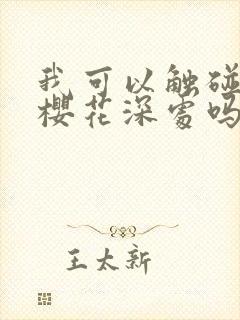 我可以触碰
樱花深处吗
王太新